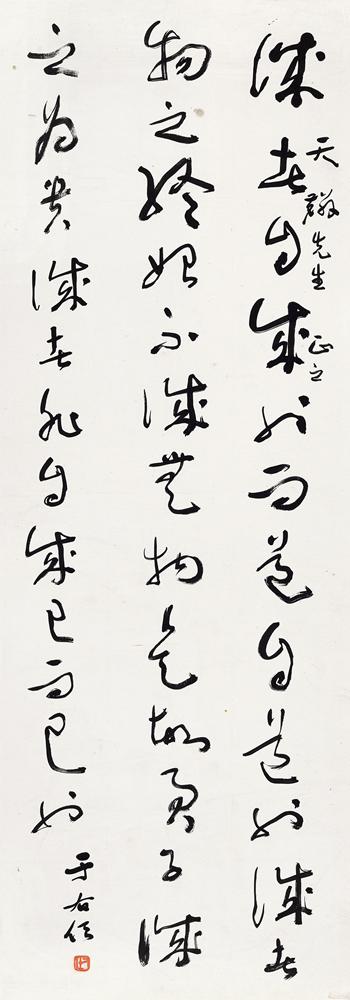 誠者自成也而道自道也誠者
物之終始不誠無物是故君子誠
之為貴誠者非自成己而已也
天 先生正之
于右任